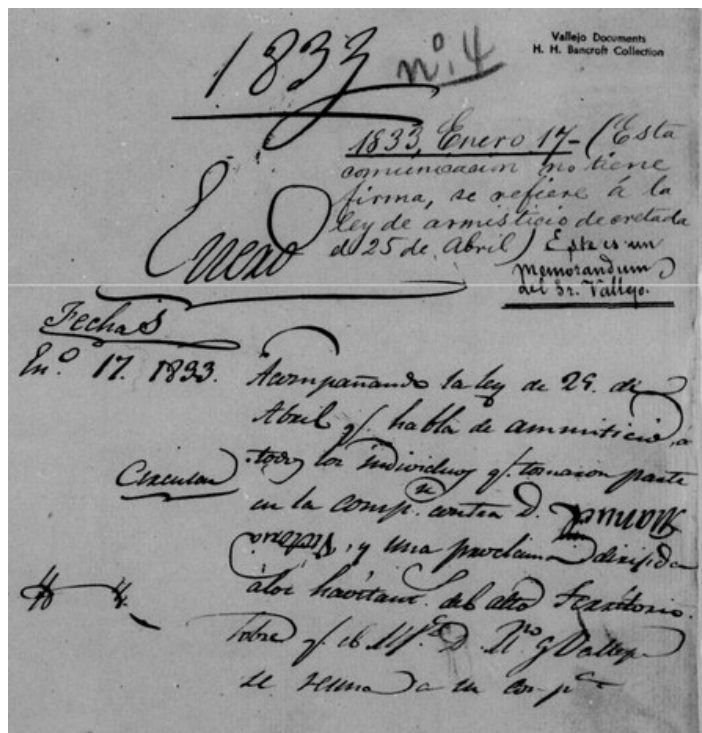 Vallejo Documents
H. H. Bancroft Collection
1833
nº. 4
1833, Enero 17- (Esta
comunicacion no tiene
firma, se refiere á la
ley de armisticio decretada
el 25 de Abril)
Este es un
memorandum
del Sr. Vallejo.
Enero
Fechas
En.º 17. 1833.
Circular
Acompañando la ley de 25. de
Abril q.e habla de ammiticio, á
todos los individuos q.e tomaron parte
en la comp.n contra D. Manuel
Victoria, y una proclama dirijida
álos havitant. del alto Territorio.
Sobre q.e el Alf.z D. M.o G Vallejo
se reuna a su comp.a